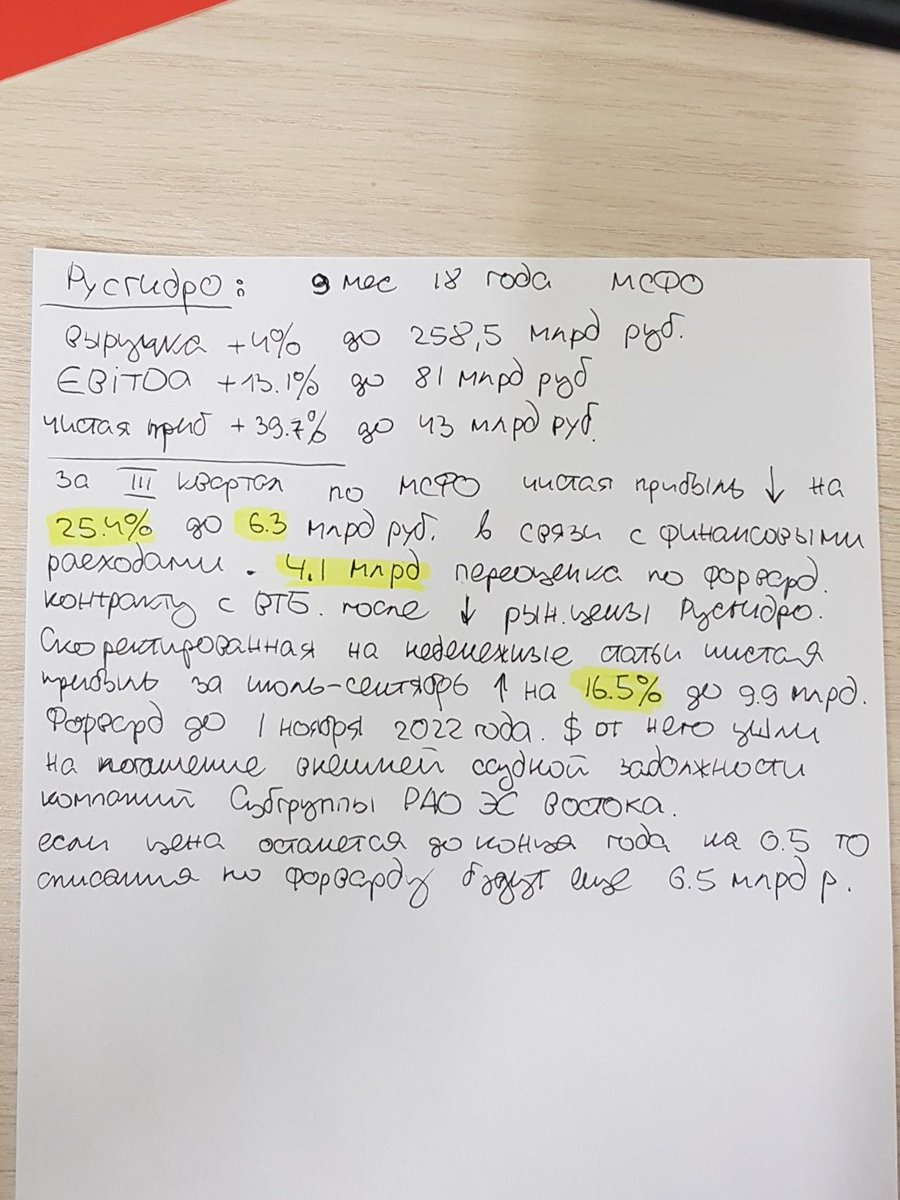 Русгидро: 9 мес 18 года МСФО
выручка +4% до 258,5 млрд руб.
EBiTDA +13.1% до 81 млрд руб
чистая приб + 39.7% до 43 млрд руб.
за III квартал по МСФО чистая прибыль ↓ на
25.4% до 6.3 млрд руб. в связи с финансовыми
расходами. 4.1 млрд переоценка по форвард.
контракту с ВТБ. после ↓ рын.цены Русгидро.
Скорректированная на неденежные статьи чистая
прибыль за июль-сентябрь ↑ на 16.5% до 9.9 млрд.
Форвард до 1 ноября 2022 года. $ от него ушли
на погашение внешней ссудной задолжности
компаний Субгруппы РАО ЭС Востока.
если цена останется до конца года на 0.5 то
списания по форварду будут еще 6.5 млрд р.